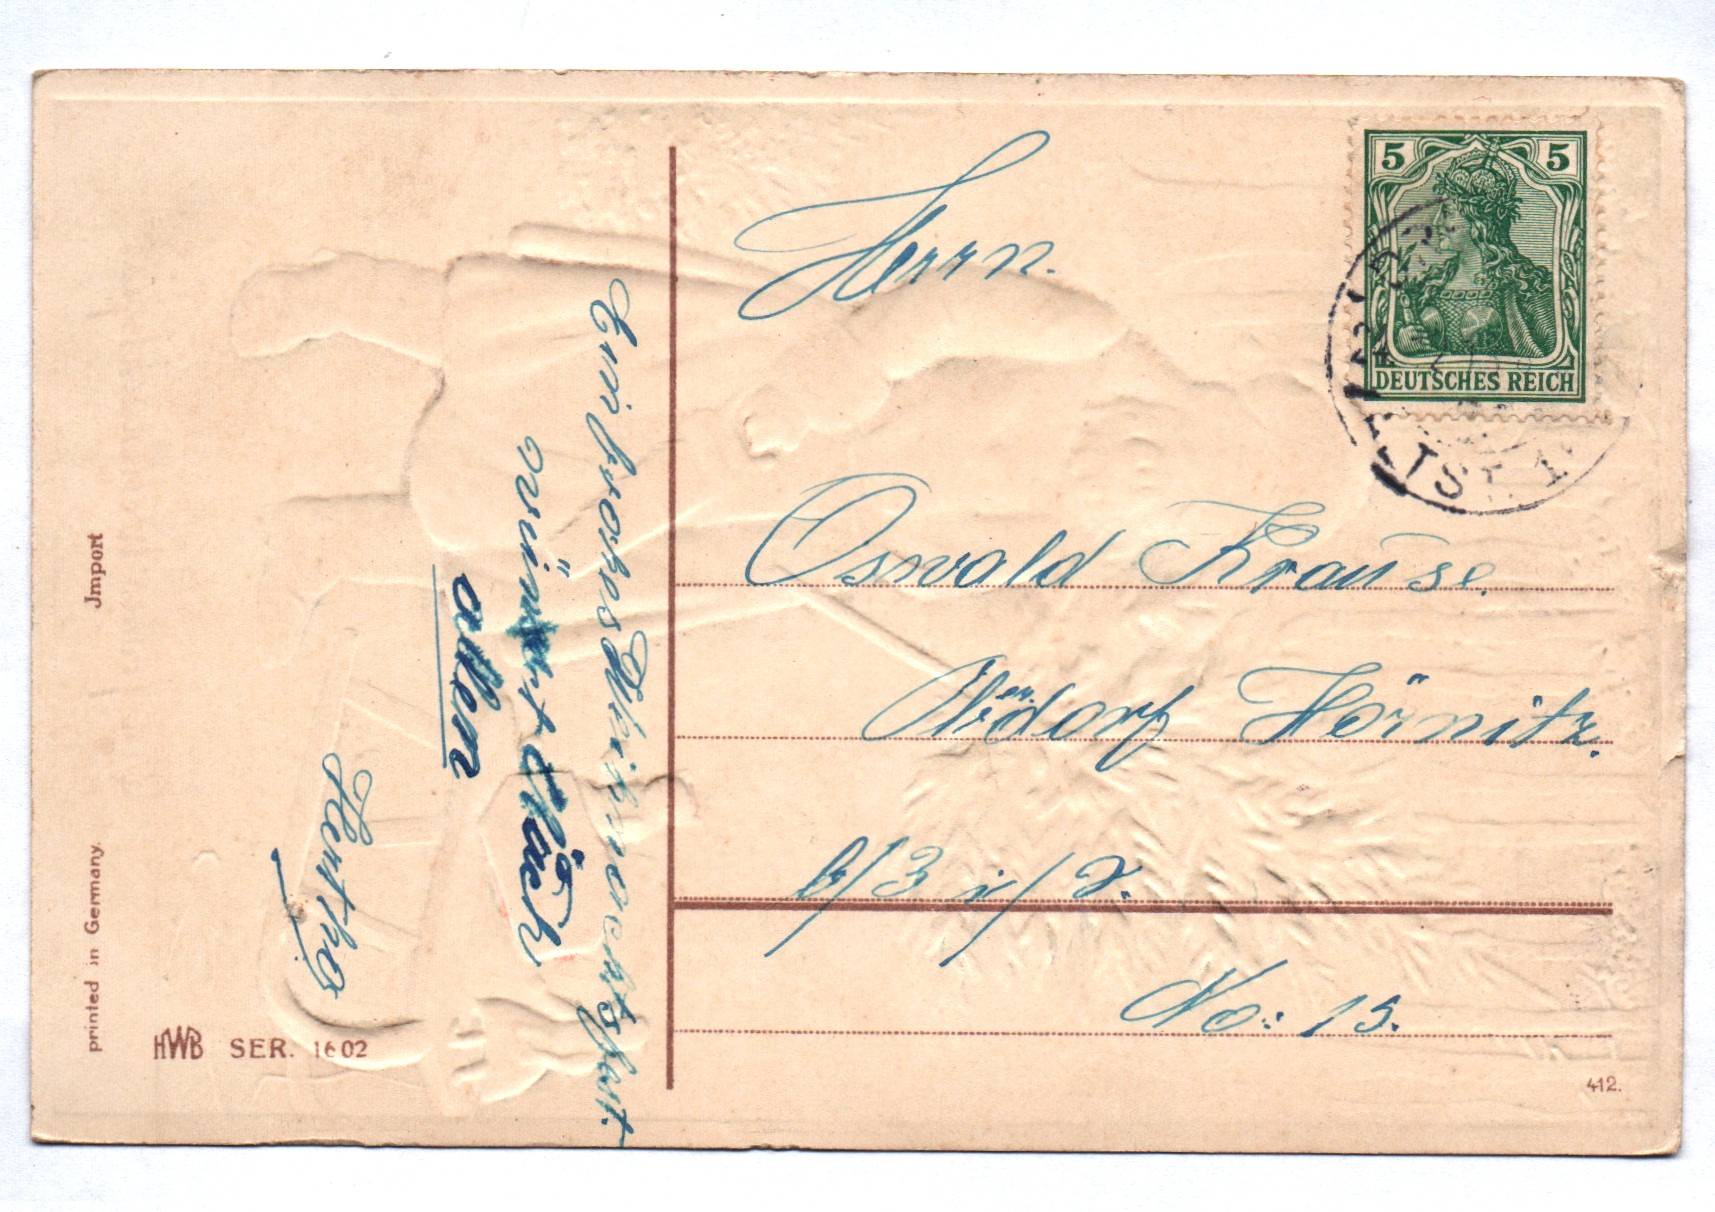 Ein frohes Weihnachtsfest.
wünscht Euch
allen
Jmport
printed in Germany.
HWB SER. 1602
5 5
DEUTSCHES REICH
Herrn.
Oswald Krause.
Hörnitz.
b/Z i/S.
No: 15.
412.